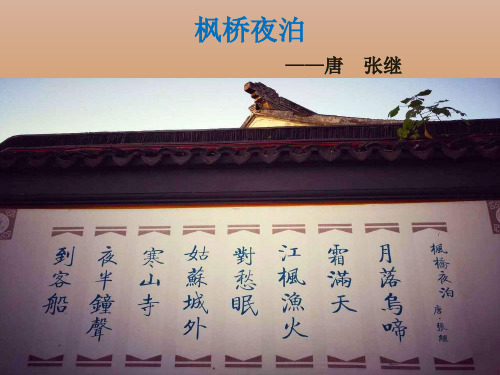 枫桥夜泊
——唐 张继
楓橋夜泊 唐·張繼
月落烏啼
霜滿天
江楓漁火
對愁眠
姑蘇城外
寒山寺
夜半鐘聲
到客船